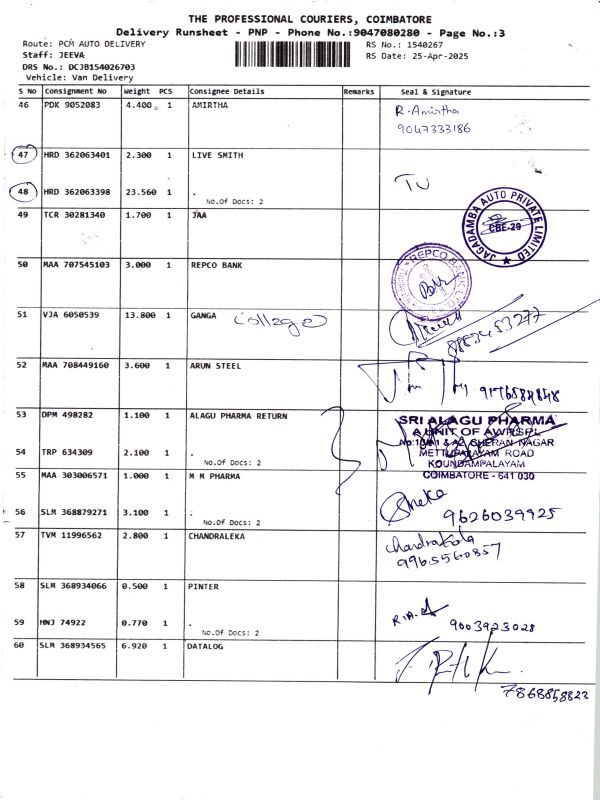 THE PROFESSIONAL COURIERS, COIMBATORE
Delivery Runsheet - PNP - Phone No.:9047080280 - Page No.:3
Route: PCM AUTO DELIVERY
Staff: JEEVA
DRS No.: DCJB154026703
Vehicle: Van Delivery
RS No.: 1540267
RS Date: 25-Apr-2025
S No Consignment No Weight PCS Consignee Details Remarks Seal & Signature
46 PDK 9052083 4.400 1 AMIRTHA
R. Amirtha
9047333186
47 HRD 362063401 2.300 1 LIVE SMITH
48 HRD 362063398 23.560 1 .
No.Of Docs: 2
49 TCR 30281340 1.700 1 JAA
JAGADAMBA AUTO PRIVATE LIMITED
CBE-29
50 MAA 707545103 3.000 1 REPCO BANK
REPCO BANK LTD
51 VJA 6050539 13.800 1 GANGA College
52 MAA 708449160 3.600 1 ARUN STEEL
53 DPM 498282 1.100 1 ALAGU PHARMA RETURN
54 TRP 634309 2.100 1 .
No.Of Docs: 2
SRI ALAGU PHARMA
A UNIT OF AWRSPL
CHERAN NAGAR
METTUPALAYAM ROAD
KOUNDAMPALAYAM
COIMBATORE - 641 030
55 MAA 303006571 1.000 1 M M PHARMA
56 SLM 368879271 3.100 1 .
No.Of Docs: 2
9626039925
57 TVM 11996562 2.800 1 CHANDRALEKA
Chandrakala
9965560857
58 SLM 368934066 0.500 1 PINTER
59 HNJ 74922 0.770 1 .
No.Of Docs: 2
9003923028
60 SLM 368934565 6.920 1 DATALOG
7868858823